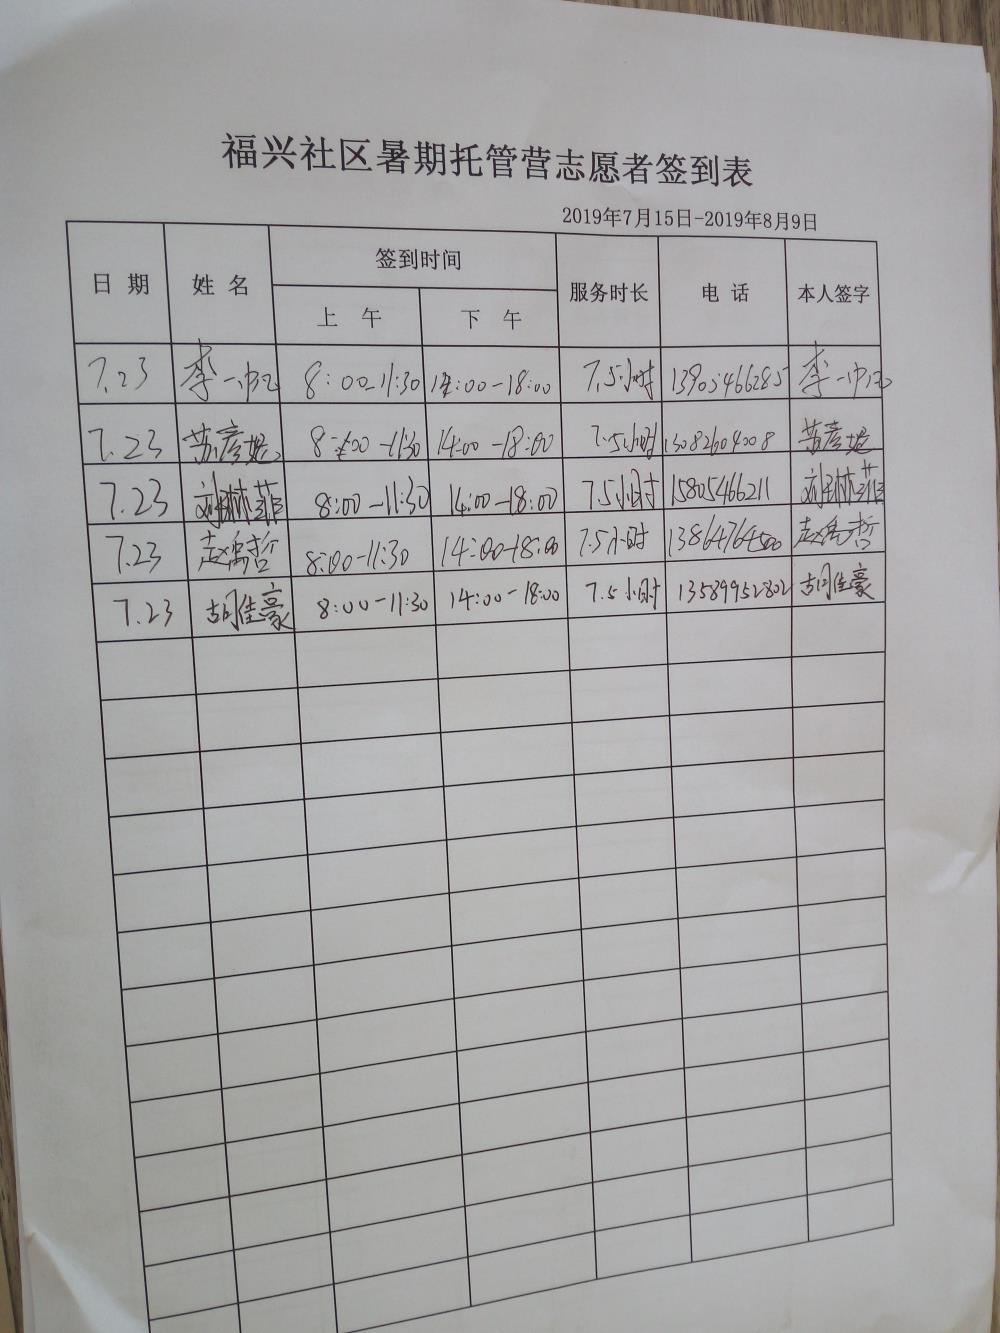 福兴社区暑期托管营志愿者签到表
2019年7月15日-2019年8月9日
日 期 姓 名 签到时间 服务时长 电 话 本人签字
上 午 下 午
7.23 李一帆 8:00-11:30 14:00-18:00 7.5小时 13905466285 李一帆
7.23 苏彦妮 8:00-11:30 14:00-18:00 7.5小时 13082604008 苏彦妮
7.23 刘林菲 8:00-11:30 14:00-18:00 7.5小时 15805466211 刘林菲
7.23 赵禹哲 8:00-11:30 14:00-18:00 7.5小时 13864764500 赵禹哲
7.23 胡佳豪 8:00-11:30 14:00-18:00 7.5小时 13589952802 胡佳豪